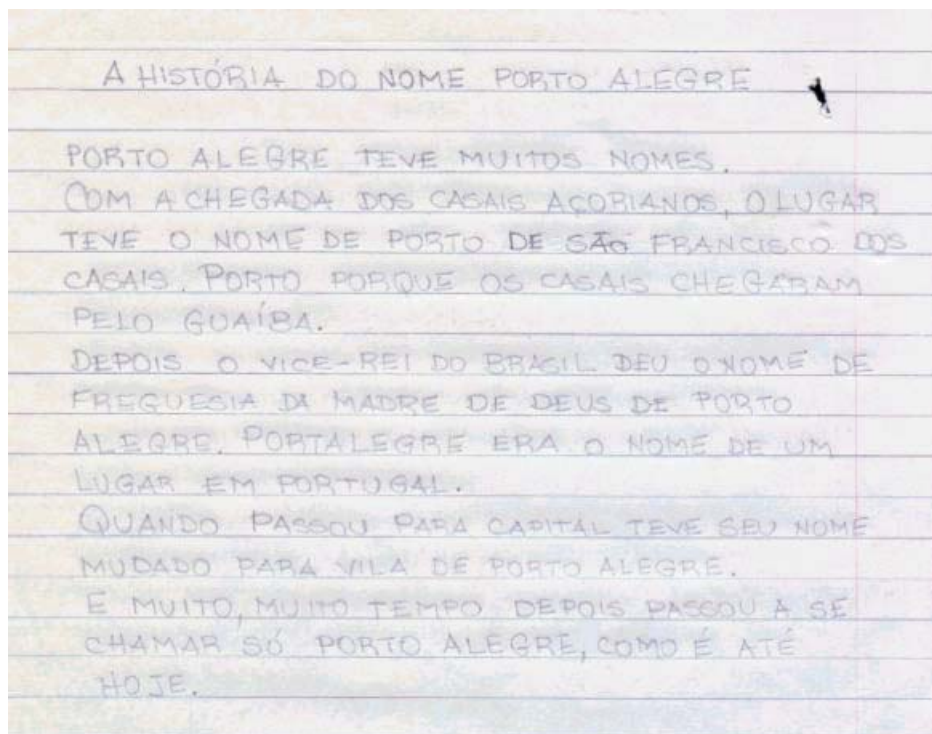 A HISTÓRIA DO NOME PORTO ALEGRE
PORTO ALEGRE TEVE MUITOS NOMES.
COM A CHEGADA DOS CASAIS AÇORIANOS, O LUGAR
TEVE O NOME DE PORTO DE SÃO FRANCISCO DOS
CASAIS. PORTO PORQUE OS CASAIS CHEGARAM
PELO GUAÍBA.
DEPOIS O VICE-REI DO BRASIL DEU O NOME DE
FREGUESIA DA MADRE DE DEUS DE PORTO
ALEGRE. PORTALEGRE ERA O NOME DE UM
LUGAR EM PORTUGAL.
QUANDO PASSOU PARA CAPITAL TEVE SEU NOME
MUDADO PARA VILA DE PORTO ALEGRE.
E MUITO, MUITO TEMPO DEPOIS PASSOU A SE
CHAMAR SÓ PORTO ALEGRE, COMO É ATÉ
HOJE.